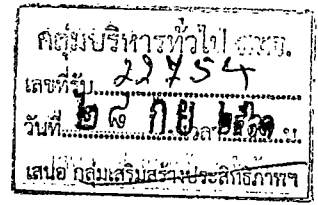 กลุ่มบริหารทั่วไป
เลขที่รับ 22754
วันที่ ๒๘ ก.ย. เวลา น.
เสนอ กลุ่มเสริมสร้างประสิทธิภาพฯ